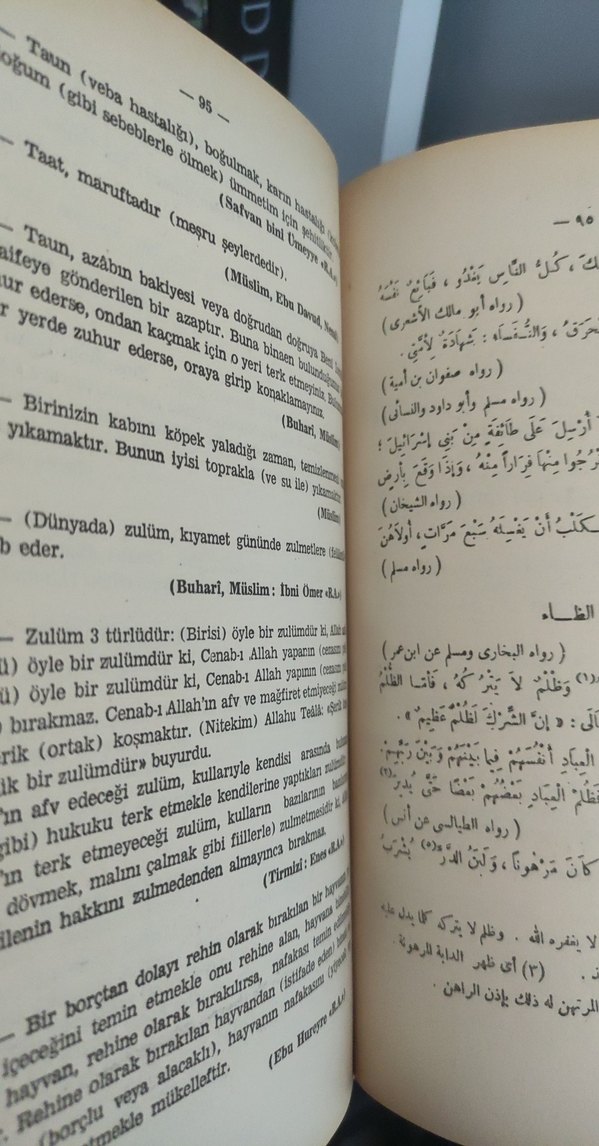 — 95 —
— Taun (veba hastalığı), boğulmak, karın hastalığı
doğum (gibi sebeblerle ölmek) ümmetim için şehitliktir.
(Safvan bini Ümeyye «R.A.»)
— Taat, maruftadır (meşru şeylerdedir).
(Müslim, Ebu Davud,
— Taun, azâbın bakiyesi veya doğrudan doğruya Beni
aifeye gönderilen bir azaptır. Buna binaen bulunduğunuz
ur ederse, ondan kaçmak için o yeri terk etmeyiniz.
r yerde zuhur ederse, oraya girip konaklamayınız.
(Buhari, Müslim)
— Birinizin kabını köpek yaladığı zaman, temizlenmesi
yıkamaktır. Bunun iyisi toprakla (ve su ile) yıkamaktır.
(Müslim)
— (Dünyada) zulüm, kıyamet gününde zulmetlere
b eder.
(Buharî, Müslim: İbni Ömer «R.A.»)
— Zulüm 3 türlüdür: (Birisi) öyle bir zulümdür ki, Allah
ü) öyle bir zulümdür ki, Cenab-ı Allah yapanın (cezasını
ü) öyle bir zulümdür ki, Cenab-ı Allah yapının (cezasını
) bırakmaz. Cenab-ı Allah'ın afv ve mağfiret etmiyeceği
erik (ortak) koşmaktır. (Nitekim) Allahu Teâlâ: «Şerik
ük bir zulümdür» buyurdu.
'ın afv edeceği zulüm, kullarıyle kendisi arasında
gibi) hukuku terk etmekle kendilerine yaptıkları
'ın terk etmeyeceği zulüm, kulların bazılarının
dövmek, malını çalmak gibi fiillerle) zulmetmesidir ki,
ilenin hakkını zulmedenden almayınca bırakmaz.
(Tirmizî: Enes «R.A.»)
— Bir borçtan dolayı rehin olarak bırakılan bir hayvanın
içeceğini temin etmekle onu rehine alan, hayvana
hayvan, rehine olarak bırakılırsa, nafakası temin
. Rehine olarak bırakılan hayvandan (istifade eden)
(borçlu veya alacaklı), hayvanın nafakasını
etmekle mükelleftir.
(Ebu Hureyre «R.A.»)
— ٩٥ —
كَ ، كُلُّ النَّاسِ يَغْدُو ، فَبَائِعٌ نَفْسَهُ
( رواه أبو مالك الأشعرى )
لْحَرَقُ ، وَالنُّفَسَاءُ : شَهَادَةٌ لِأُمَّتِي .
( رواه صفوان بن أمية )
( رواه مسلم وأبو داود والنسائى )
أُرْسِلَ عَلَى طَائِفَةٍ مِنْ بَنِي إِسْرَائِيلَ ؛
خْرُجُوا مِنْهَا فِرَاراً مِنْهُ ، وَإِذَا وَقَعَ بِأَرْضٍ
( رواه الشيخان )
كَلْبُ أَنْ يَغْسِلَهُ سَبْعَ مَرَّاتٍ ، أُولَاهُنَّ
( رواه مسلم )
الظاء
( رواه البخارى ومسلم عن ابن عمر )
(١) وَظُلْمٌ لَا يَتْرُكُهُ ، فَأَمَّا الظُّلْمُ
الَى : « إِنَّ الشِّرْكَ لَظُلْمٌ عَظِيمٌ » .
الْعِبَادِ أَنْفُسَهُمْ فِيمَا بَيْنَهُمْ وَبَيْنَ رَبِّهِمْ
فَظُلْمُ الْعِبَادِ بَعْضُهُمْ بَعْضًا حَتَّى يُدِيرَ (٢)
( رواه الطيالسى عن أنس )
كَانَ مَرْهُونًا ، وَلَبَنُ الدَّرِّ يُشْرَبُ
لا يغفره الله . وظلم لا يتركه كما يدل عليه
. (٣) أى ظهر الدابة المرهونة .
المرتهن له ذلك بإذن الراهن .